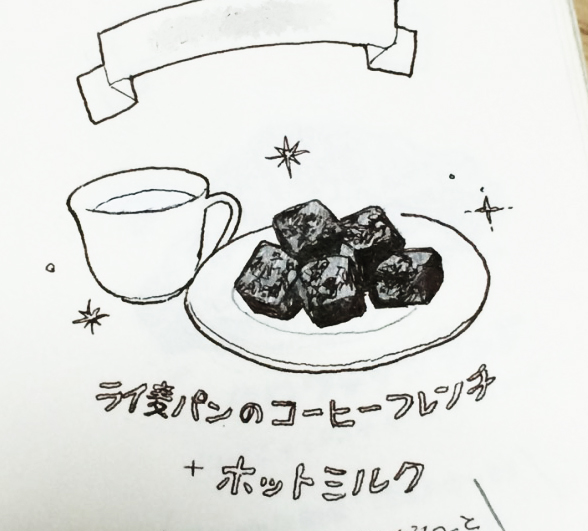 ライ麦パンのコーヒーフレンチ
+ ホットミルク